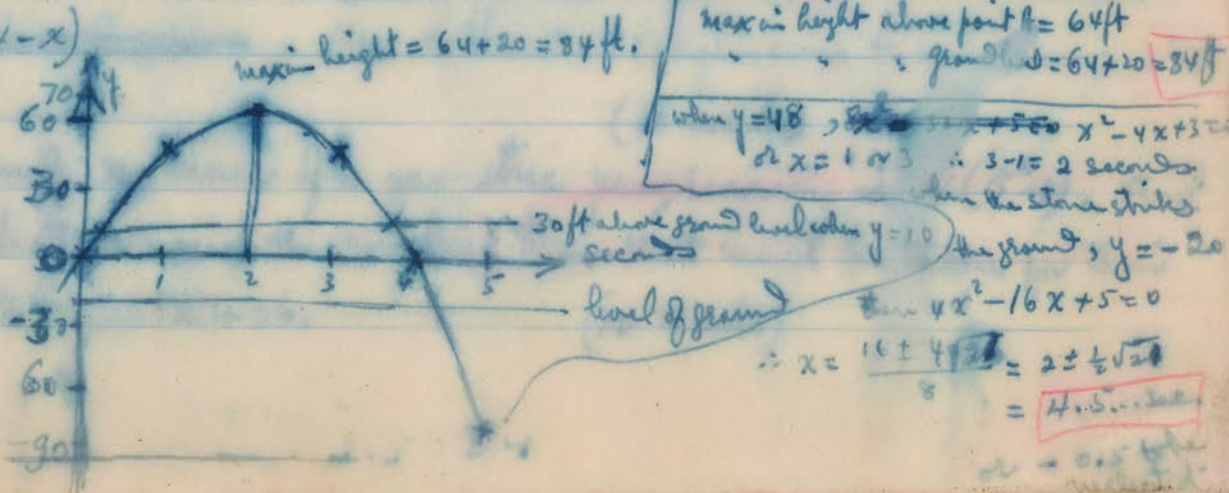 -x)
maxm height = 64+20 = 84 ft.
y
70
60
30
0
1 2 3 4 5
-30
60
-90
30 ft above ground level when y=10
seconds
level of ground
maxm height above point A = 64ft
" " " ground = 64+20 = 84 ft
when y=48, x²-4x+3=
or x=1 or 3 ∴ 3-1= 2 seconds
when the stone strikes
the ground, y=-20
then 4x²-16x+5=0
∴ x= 16 ± 4√21 / 8 = 2 ± ½√21
= 4.5... sec.
or - 0.5 to be